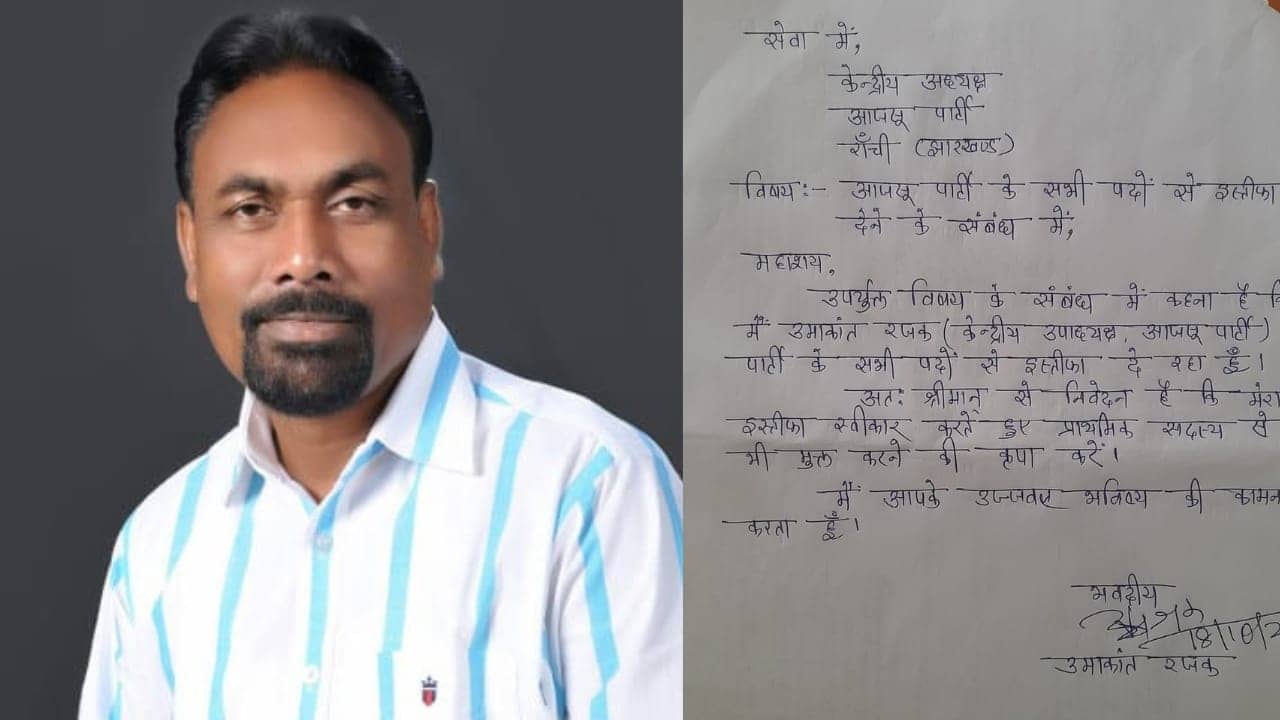 सेवा में,
केन्द्रीय अध्यक्ष
आजसू पार्टी
राँची (झारखण्ड)
विषय:- आजसू पार्टी के सभी पदों से इस्तीफा
देने के संबंध में,
महाशय,
उपर्युक्त विषय के संबंध में कहना है
मैं उमाकांत रजक (केन्द्रीय उपाध्यक्ष, आजसू पार्टी)
पार्टी के सभी पदों से इस्तीफा दे रहा हूँ।
अतः श्रीमान् से निवेदन है कि मेरा
इस्तीफा स्वीकार करते हुए प्राथमिक सदस्य से
भी मुक्त करने की कृपा करें।
मैं आपके उज्जवल भविष्य की कामन
करता हूँ।
भवदीय
18/10/2
उमाकांत रजक